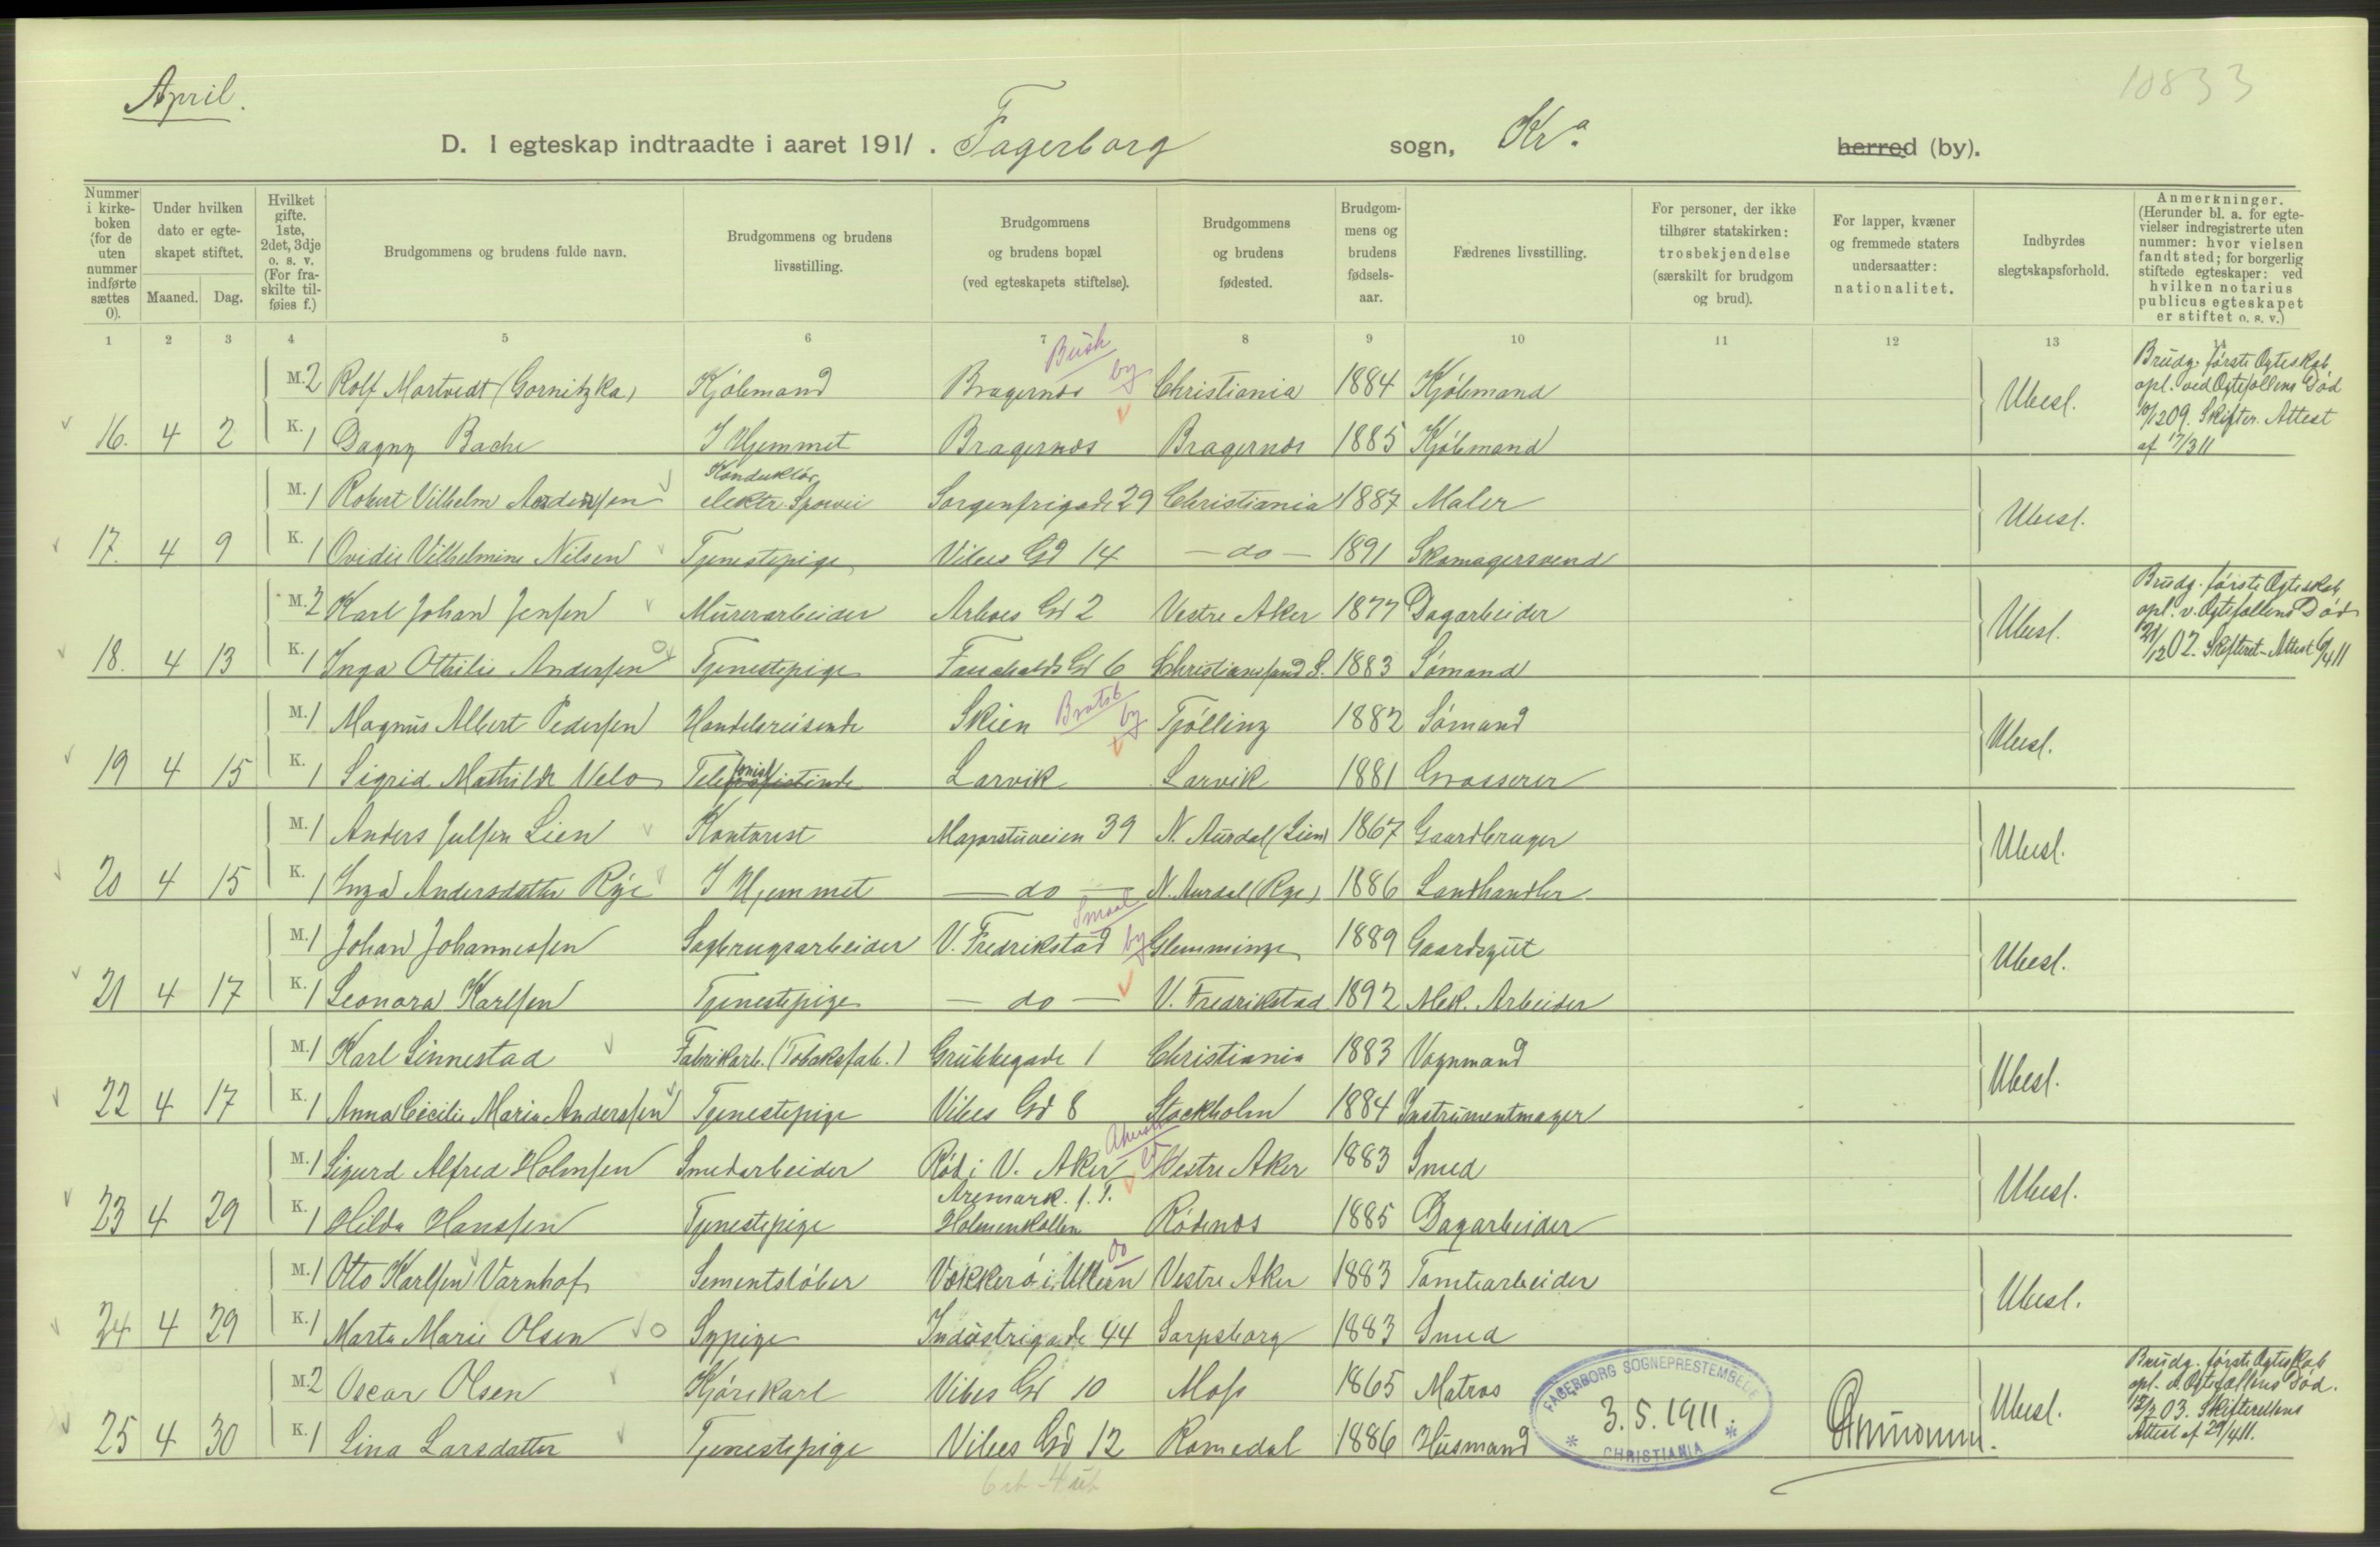 April.
10833
D. I egteskap indtraadte i aaret 1911. Fagerborg sogn, Kra. herred (by).
Nummer i kirkeboken (for de uten nummer indførte sættes 0).
Under hvilken dato er egteskapet stiftet.
Maaned. Dag.
Hvilket gifte. 1ste, 2det, 3dje o. s. v. (For fraskilte tilføies f.)
Brudgommens og brudens fulde navn.
Brudgommens og brudens livsstilling.
Brudgommens og brudens bopæl (ved egteskapets stiftelse).
Brudgommens og brudens fødested.
Brudgommens og brudens fødselsaar.
Fædrenes livsstilling.
For personer, der ikke tilhører statskirken: trosbekjendelse (særskilt for brudgom og brud).
For lapper, kvæner og fremmede staters undersaatter: nationalitet.
Indbyrdes slegtskapsforhold.
Anmerkninger. (Herunder bl. a. for egtevielser indregistrerte uten nummer: hvor vielsen fandt sted; for borgerlig stiftede egteskaper: ved hvilken notarius publicus egteskapet er stiftet o. s. v.)
1 2 3 4 5 6 7 8 9 10 11 12 13 14
M. 2 Rolf Martvedt (Gornitzka) Kjøbmand Bragernæs Busk by Christiania 1884 Kjøbmand
16. 4 2 K. 1 Dagny Bache I Hjemmet Bragernæs Bragernæs 1885 Kjøbmand Ubesl.
Brudg. første Ægteskab opl. ved Ægtefællens Død 10/12 09. Skifter. Attest af 17/3 11
M. 1 Robert Vilhelm Andersen Konduktør elektr. Sporvei Sorgenfrigade 29 Christiania 1887 Maler
17. 4 9 K. 1 Ovidie Vilhelmine Nilsen Tjenestepige Vibes Gd 14 — do — 1891 Skomagersvend Ubesl.
M. 2 Karl Johan Jensen Murerarbeider Arboes Gd 2 Vestre Aker 1877 Dagarbeider
18. 4 13 K. 1 Inga Othilie Andersen Tjenestepige Fauchalds Gd 6 Christianssand S. 1883 Sømand Ubesl.
Brudg. første Ægteskab opl. v. Ægtefællens Død 21/12 02. Skifteret-Attest 6/4 11
M. 1 Magnus Albert Pedersen Handelsreisende Skien Bratsb by Tjølling 1882 Sømand
19 4 15 K. 1 Sigrid Mathilde Velo Telefonistinde Larvik Larvik 1881 Grosserer Ubesl.
M. 1 Anders Julsen Lien Kontorist Majorstuveien 39 N. Aurdal (Lien) 1867 Gaardbruger
20 4 15 K. 1 Inga Andersdatter Rye I Hjemmet — do — N. Aurdal (Rye) 1886 Landhandler Ubesl.
M. 1 Johan Johannessen Sagbrugsarbeider V. Fredrikstad Smaal by Glemminge 1889 Gaardsgut
21 4 17 K. 1 Leonora Karlsen Tjenestepige — do — V. Fredrikstad 1892 Mek. Arbeider Ubesl.
M. 1 Karl Linnestad Fabrikarb. (Tobaksfab.) Grubbegade 1 Christiania 1883 Vognmand
22 4 17 K. 1 Anna Cecilie Maria Anderssen Tjenestepige Vibes Gd 8 Stockholm 1884 Instrumentmager Ubesl.
M. 1 Sigurd Alfred Holmsen Smedarbeider Röd i V. Aker Akersh Vestre Aker 1883 Smed
23 4 29 K. 1 Hilda Hanssen Tjenestepige Aremark. f. T. Holmenkollen Rødenæs 1885 Dagarbeider Ubesl.
M. 1 Otto Karlsen Varnhof Sementstøber Vækkerø i Ullern do Vestre Aker 1883 Tomtearbeider
24 4 29 K. 1 Marta Marie Olsen Sypige Industrigade 44 Sarpsborg 1883 Smed Ubesl.
M. 2 Oscar Olsen Kjørekarl Vibes Gd 10 Moss 1865 Matros
25 4 30 K. 1 Lina Larsdatter Tjenestepige Vibes Gd 12 Romedal 1886 Husmand Ubesl.
Brudg. første Ægteskab opl. v. Ægtefællens Død. 03. Skifterettens Attest af 29/4 11.
FAGERBORG SOGNEPRESTEMBEDE
3.5.1911.
* CHRISTIANIA *